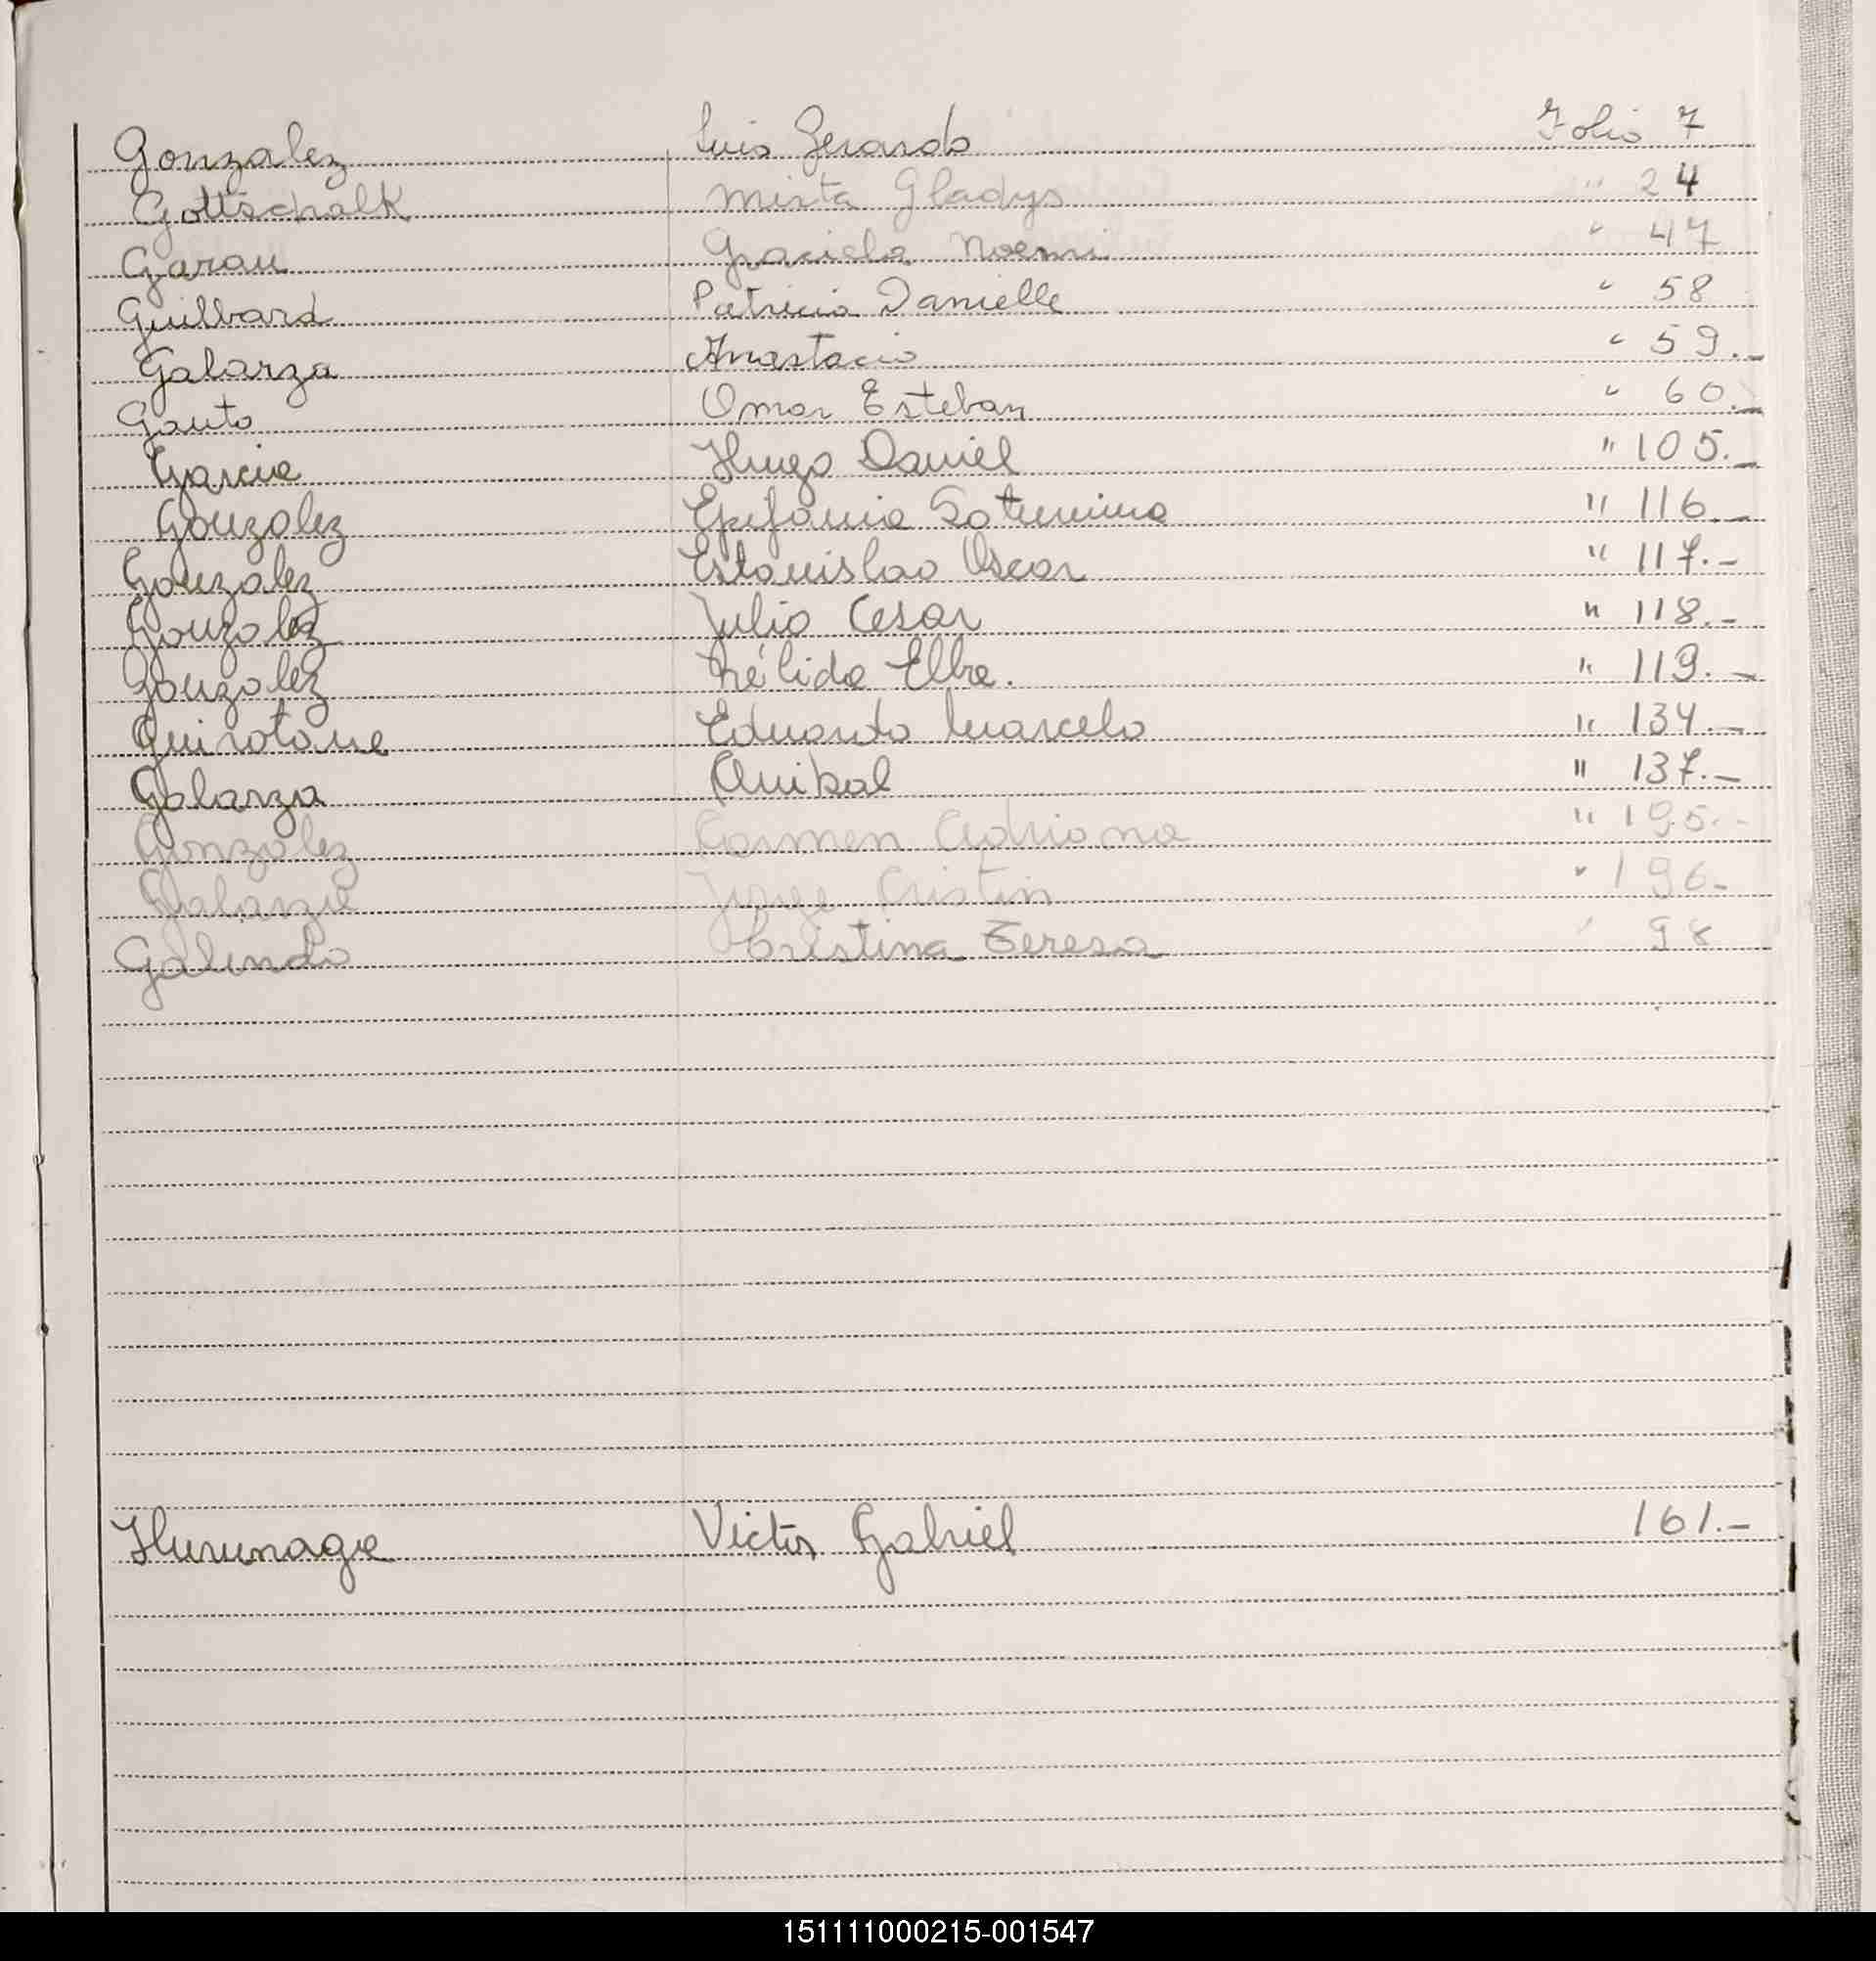 Gonzalez Luis Gerardo Folio 7
Gottschalk Mirta Gladys " 24
Garau Graciela Noemi " 47
Guilbard Patricia Danielle " 58
Galarza Anastacio " 59.-
Gauto Omar Esteban " 60.-
Garcia Hugo Daniel " 105.-
Gonzalez Epifania Saturnina " 116.-
Gonzalez Estanislao Oscar " 117.-
Gonzalez Julio Cesar " 118.-
Gonzalez Nélida Elba. " 119.-
Eduardo Marcelo " 134.-
Galarza Anibal " 137.-
Gonzalez Carmen Adriana " 195.-
Jorge " 196-
Galindo Cristina Teresa " 98
Victor Gabriel 161.-
151111000215-001547